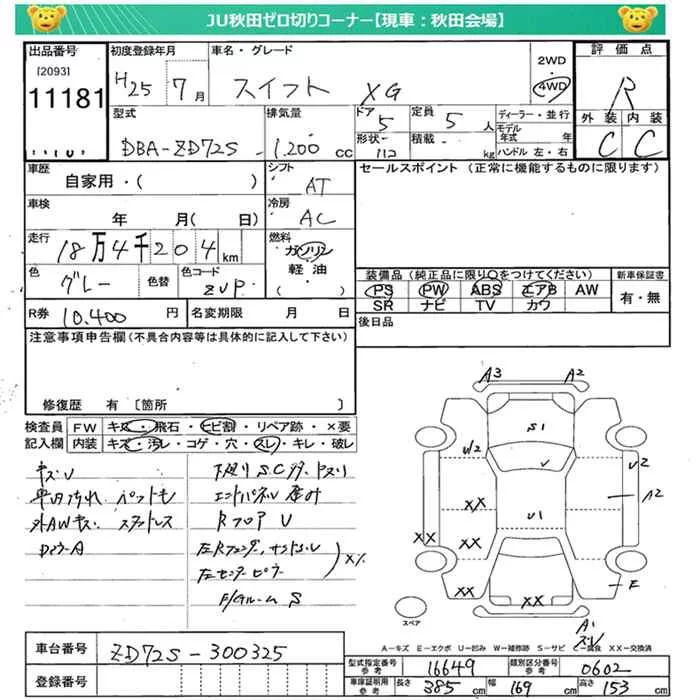 JU秋田ゼロ切りコーナー【現車：秋田会場】
出品番号 初度登録年月 車名・グレード 2WD 評価点
[2093] H25 7月 スイフト XG 4WD R
11181
型式 排気量 ドア 定員 ディーラー・並行 外装 内装
DBA-ZD72S 1,200cc 5 5人 モデル年式 年 C C
形状 積載 kg ハンドル 左・右
車歴 シフト セールスポイント (正常に機能するものに限ります)
自家用・( ) AT
車検 冷房
年 月( 日) AC
走行 燃料
18万4千204km ガソリン
軽油
( )
色 色替 色コード 装備品 (純正品に限り○をつけてください) 新車保証書
グレー ZVP PS PW ABS エアB AW 有・無
SR ナビ TV カワ
R券 10,400円 名変期限 月 日 後日品
注意事項申告欄 (不具合内容等は具体的に記入して下さい)
修復歴 有 [箇所 ]
検査員 FW キズ・飛石・ヒビ割・リペア跡・×要
記入欄 内装 キズ・汚レ・コゲ・穴・スレ・キレ・破レ
A3 A2
S1
U2
U2
A2
XX
U1
XX
XX
XX
XX
E
A1
キズU
下廻りS
外AWキズ スタッドレス
RフロアU
スペア
A－キズ E－エクボ U－凹み W－補修跡 S－サビ C－腐食 XX－交換済
車台番号 ZD72S-300325
登録番号
型式指定番号 参考 16649 類別区分番号 参考 0602
車庫証明用 参考 長さ 385cm 幅 169cm 高さ 153cm